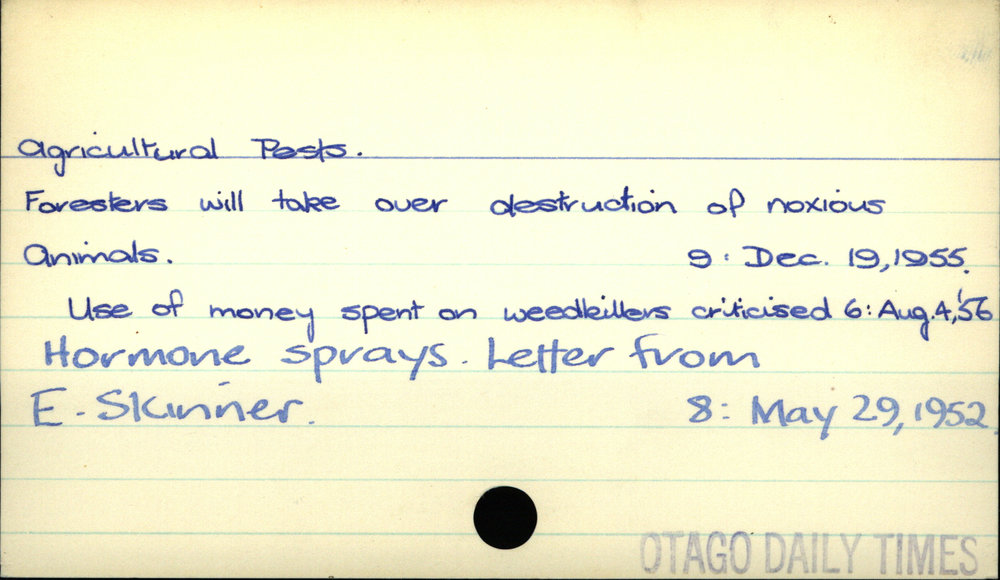 Agricultural Pests.
Foresters will take over destruction of noxious
Animals. 9: Dec. 19, 1955.
Use of money spent on weedkillers criticised 6: Aug. 4, '56
Hormone sprays. Letter from
E. Skinner. 8: May 29, 1952.
OTAGO DAILY TIMES